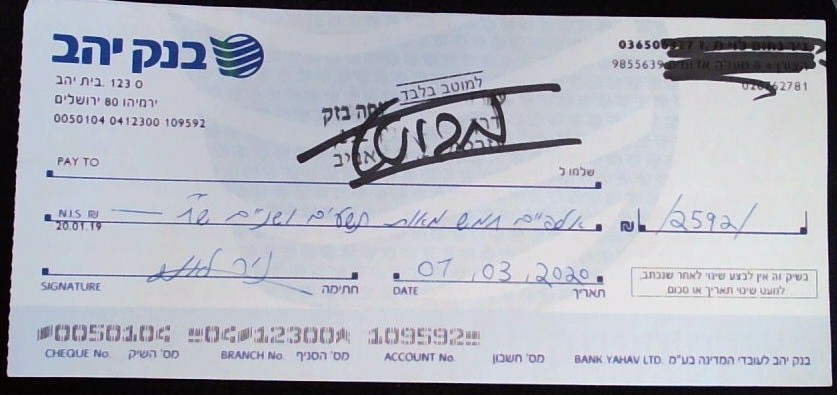 בנק יהב
בית יהב. 123 0
ירמיהו 80 ירושלים
0050104 0412300 109592
9855639
למוטב בלבד
בזק
אביב
מבוטל
PAY TO
שלמו ל
N.I.S ₪
20.01.19
אלפיים חמש מאות תשעים ושניים ש"ח
₪ /2592/
SIGNATURE
חתימה
01.03.2020
DATE
תאריך
בשיק זה אין לבצע שינוי לאחר שנכתב,
למעט שינוי תאריך או סכום.
0050104 04 12300 109592
CHEQUE No. מס' השיק BRANCH No. מס' הסניף ACCOUNT No. מס' חשבון BANK YAHAV LTD. בנק יהב לעובדי המדינה בע"מ